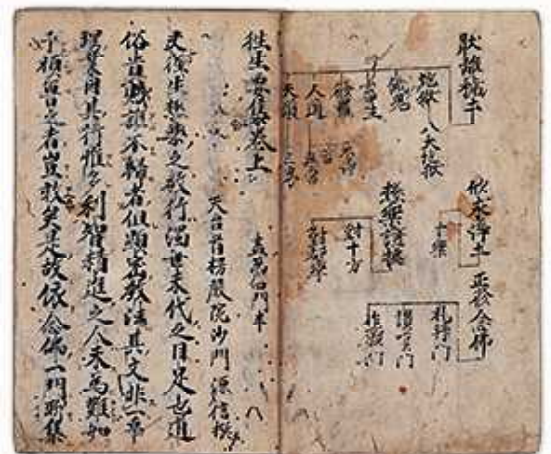 厭離穢土
地獄 八大地獄
餓鬼
畜生
修羅
人道
天道
欣求淨土
十樂
極樂證據
對十方
對兜率
正修念佛
礼拝門
讃嘆門
作願門
往生要集卷上 盡第四門半
天台首楞嚴院沙門源信撰
夫往生極樂之教行濁世末代之目足也道
俗貴賤誰不歸者但顯密教法其文非一事
理業因其行惟多利智精進之人未為難如
予頑魯之者豈敢矣是故依念佛一門聊集